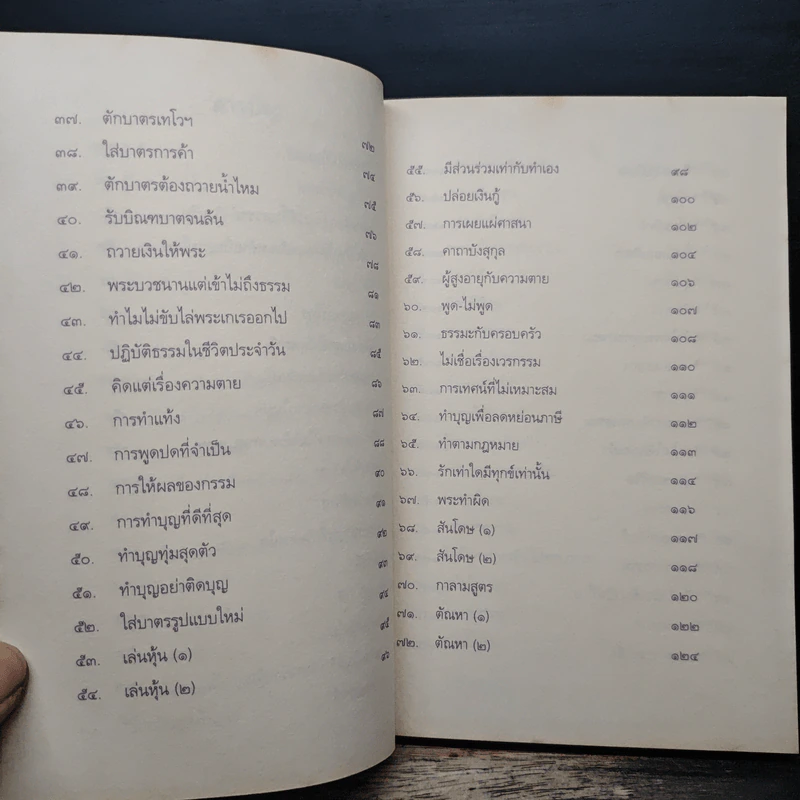 ๓๗. ตักบาตรเทโวฯ ๗๒
๓๘. ใส่บาตรการค้า ๗๔
๓๙. ตักบาตรต้องถวายน้ำไหม ๗๕
๔๐. รับบิณฑบาตจนล้น ๗๖
๔๑. ถวายเงินให้พระ ๗๘
๔๒. พระบวชนานแต่เข้าไม่ถึงธรรม ๘๑
๔๓. ทำไมไม่ขับไล่พระเกเรออกไป ๘๓
๔๔. ปฏิบัติธรรมในชีวิตประจำวัน ๘๕
๔๕. คิดแต่เรื่องความตาย ๘๖
๔๖. การทำแท้ง ๘๗
๔๗. การพูดปดที่จำเป็น ๘๘
๔๘. การให้ผลของกรรม ๙๐
๔๙. การทำบุญที่ดีที่สุด ๙๑
๕๐. ทำบุญทุ่มสุดตัว ๙๒
๕๑. ทำบุญอย่าติดบุญ ๙๓
๕๒. ใส่บาตรรูปแบบใหม่ ๙๔
๕๓. เล่นหุ้น (๑) ๙๕
๕๔. เล่นหุ้น (๒) ๙๖
๕๕. มีส่วนร่วมเท่ากับทำเอง ๙๘
๕๖. ปล่อยเงินกู้ ๑๐๐
๕๗. การเผยแผ่ศาสนา ๑๐๒
๕๘. คาถาบังสุกุล ๑๐๔
๕๙. ผู้สูงอายุกับความตาย ๑๐๖
๖๐. พูด-ไม่พูด ๑๐๗
๖๑. ธรรมะกับครอบครัว ๑๐๘
๖๒. ไม่เชื่อเรื่องเวรกรรม ๑๑๐
๖๓. การเทศน์ที่ไม่เหมาะสม ๑๑๑
๖๔. ทำบุญเพื่อลดหย่อนภาษี ๑๑๒
๖๕. ทำตามกฎหมาย ๑๑๓
๖๖. รักเท่าใดมีทุกข์เท่านั้น ๑๑๔
๖๗. พระทำผิด ๑๑๖
๖๘. สันโดษ (๑) ๑๑๗
๖๙. สันโดษ (๒) ๑๑๘
๗๐. กาลามสูตร ๑๒๐
๗๑. ตัณหา (๑) ๑๒๒
๗๒. ตัณหา (๒) ๑๒๔